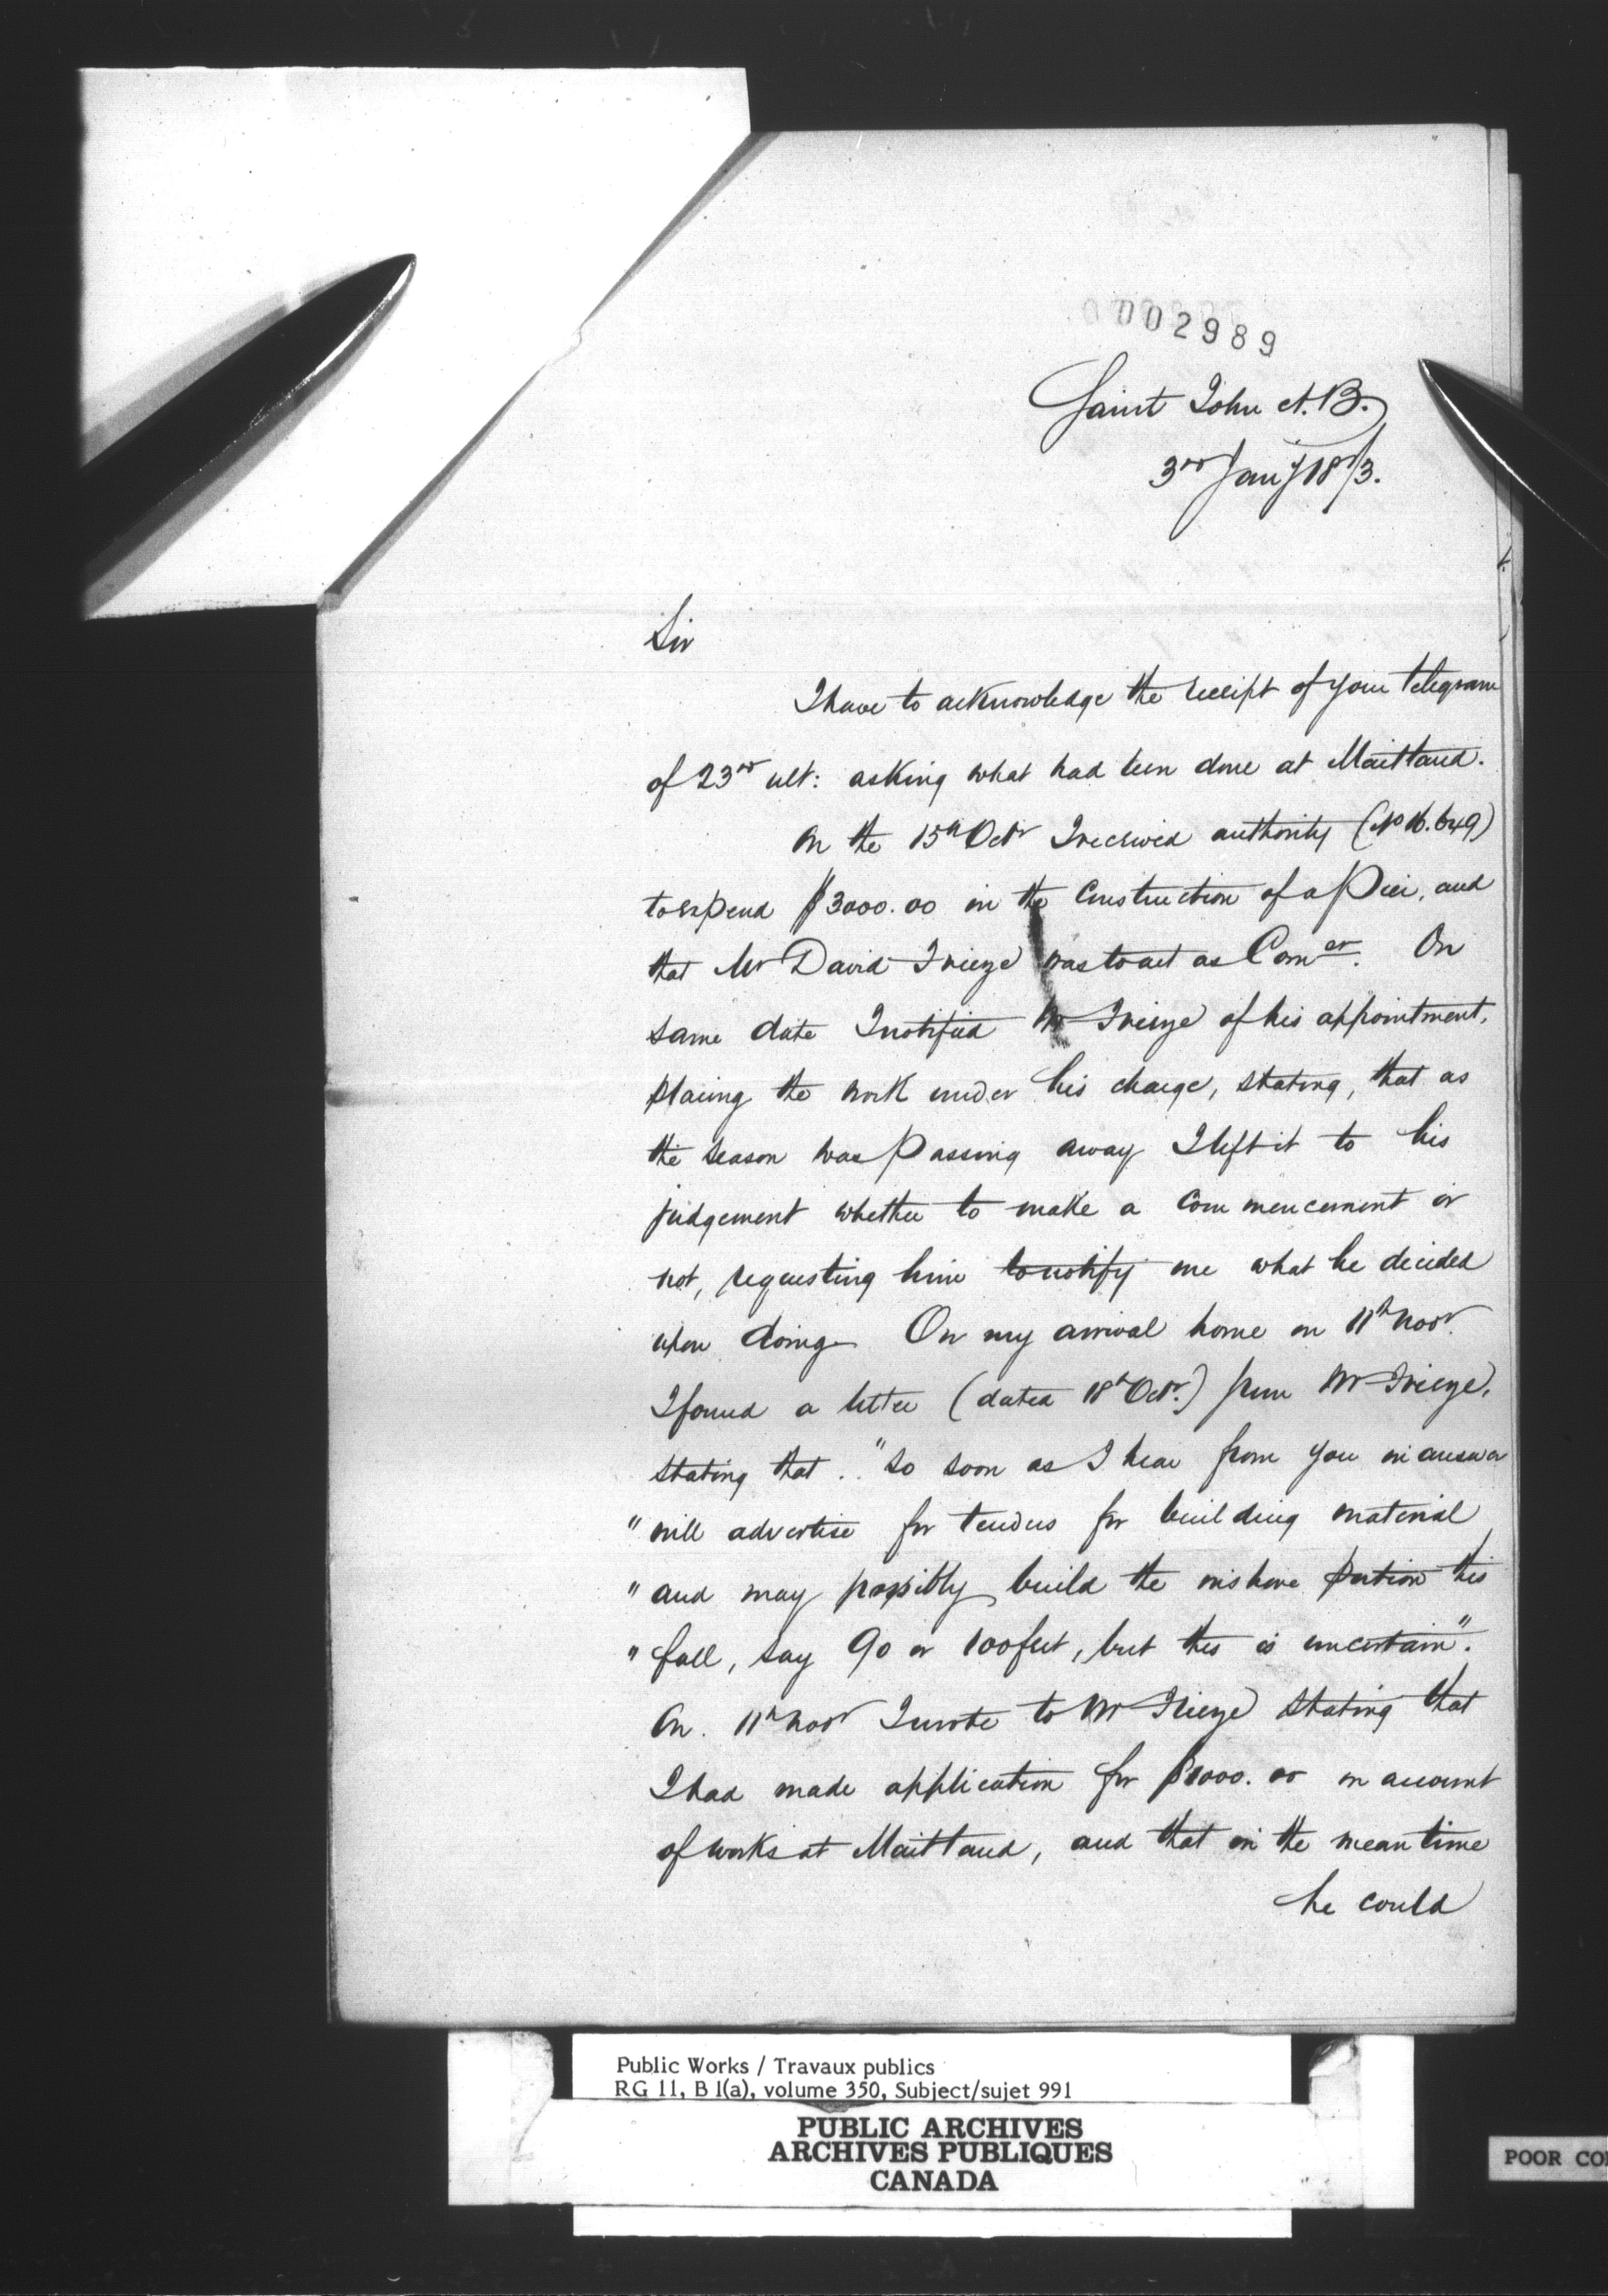 0002989
Saint John N.B.
3rd Jany 1873.
Sir
I have to acknowledge the receipt of your telegram
of 23rd ult: asking what had been done at Maitland.
On the 15th Octr I received authority (No 16.649)
to expend $3000.00 in the Construction of a Pier, and
that Mr David Frieze was to act as Comer. On
same date I notified Mr Frieze of his appointment,
placing the work under his charge, stating, that as
the season was passing away I left it to his
judgement whether to make a commencement or
not, requesting him to notify me what he decided
upon doing. On my arrival home on 11th Novr
I found a letter (dated 18th Octr.) from Mr Frieze,
stating that .. "so soon as I hear from you in answer
" will advertise for tenders for building material
" and may possibly build the inshore portion this
" fall, say 90 or 100 feet, but this is uncertain".
On 11th Novr I wrote to Mr Frieze stating that
I had made application for $1000.00 on account
of works at Maitland, and that in the mean time
he could
Public Works / Travaux publics
RG 11, B 1(a), volume 350, Subject/sujet 991
PUBLIC ARCHIVES
ARCHIVES PUBLIQUES
CANADA
POOR CO